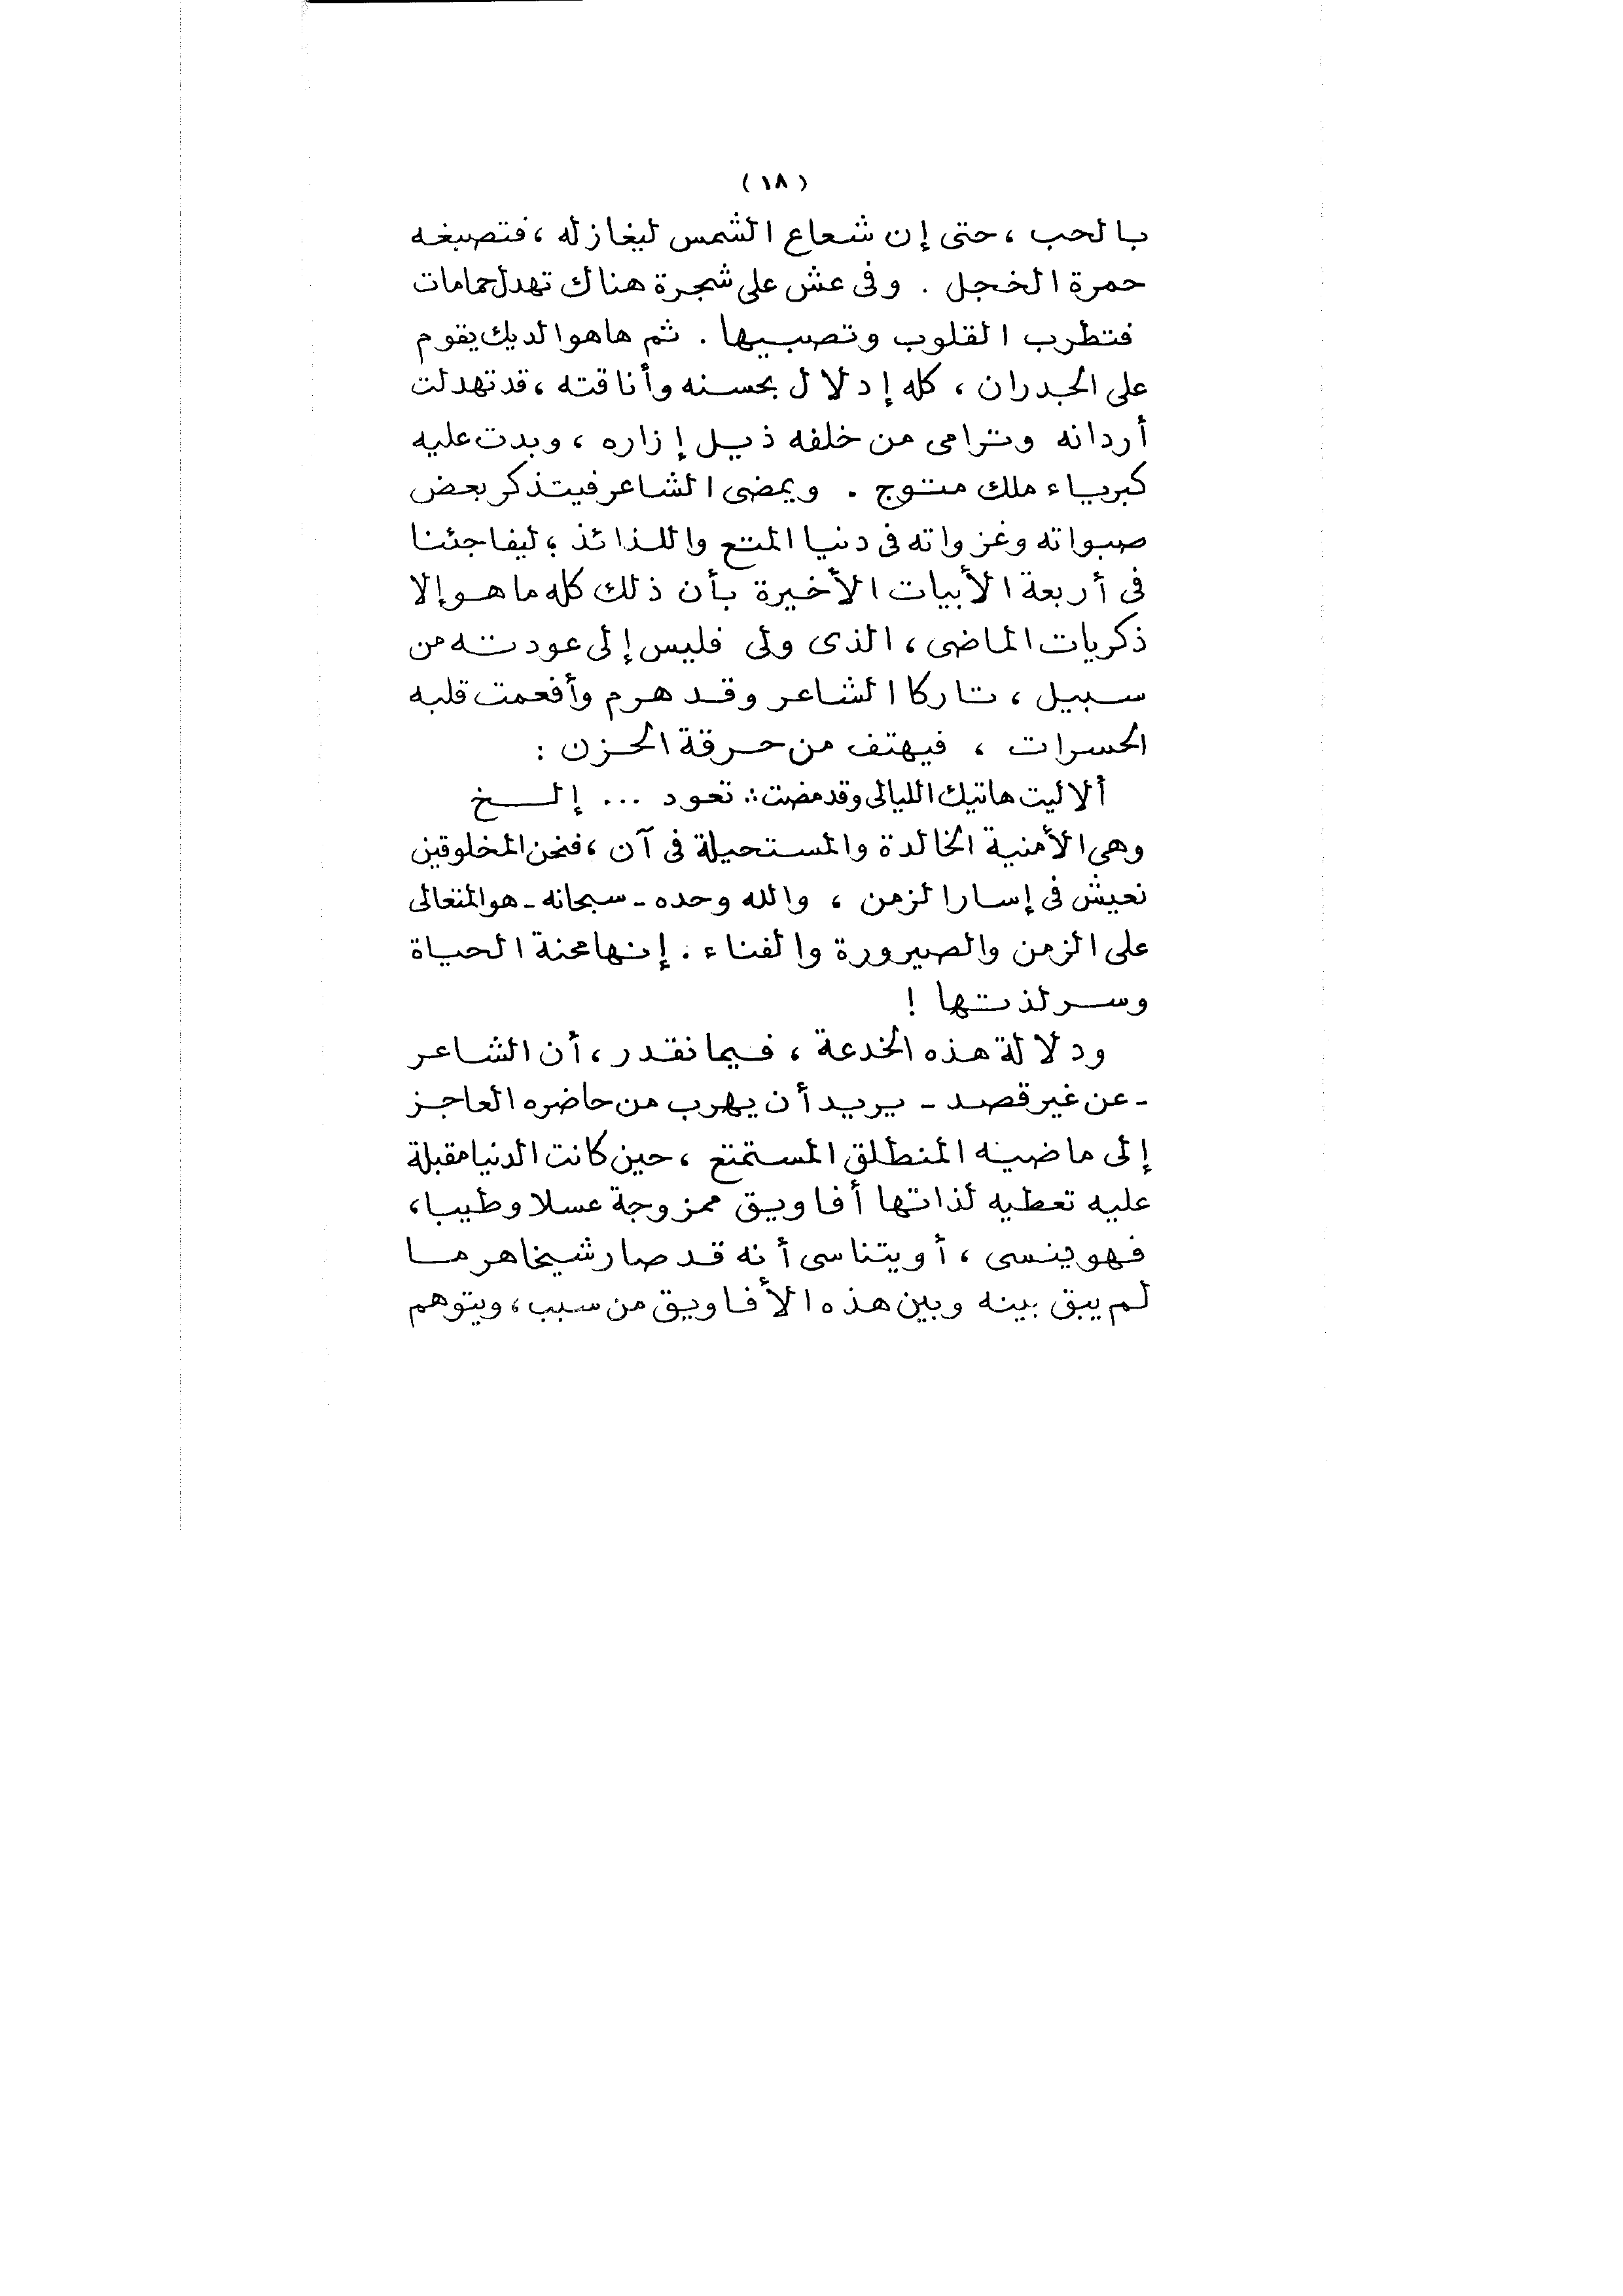 (١٨)
بالحب ، حتى إن شعاع الشمس ليغازله ، فتصبغه
حمرة الخجل . وفى عش على شجرة هناك تهدل حمامات
فتطرب القلوب وتصبيها . ثم ها هو الديك يقوم
على الجدران ، كله إدلال بحسنه وأناقته ، قد تهدلت
أردانه وترامى من خلفه ذيل إزاره ، وبدت عليه
كبرياء ملك متوج . ويمضى الشاعر فيتذكر بعض
صبواته وغزواته فى دنيا المتع واللذائذ ؛ ليفاجئنا
فى أربعة الأبيات الأخيرة بأن ذلك كله ما هو إلا
ذكريات الماضى ، الذى ولى فليس إلى عودته من
سبيل ، تاركا الشاعر وقد هرم وأفعمت قلبه
الحسرات ، فيهتف من حرقة الحزن :
ألا ليت هاتيك الليالى وقد مضت ∴ تعود ... إلخ
وهى الأمنية الخالدة والمستحيلة فى آن ، فنحن المخلوقين
نعيش فى إسار الزمن ، والله وحده - سبحانه - هو المتعالى
على الزمن والصيرورة والفناء . إنها محنة الحياة
وسر لذتها !
ودلالة هذه الخدعة ، فيما نقدر ، أن الشاعر
- عن غير قصد - يريد أن يهرب من حاضره العاجز
إلى ماضيه المنطلق المستمتع ، حين كانت الدنيا مقبلة
عليه تعطيه لذاتها أفاويق ممزوجة عسلا وطيبا ،
فهو ينسى ، أو يتناسى أنه قد صار شيخا هرما
لم يبق بينه وبين هذه الأفاويق من سبب ، ويتوهم